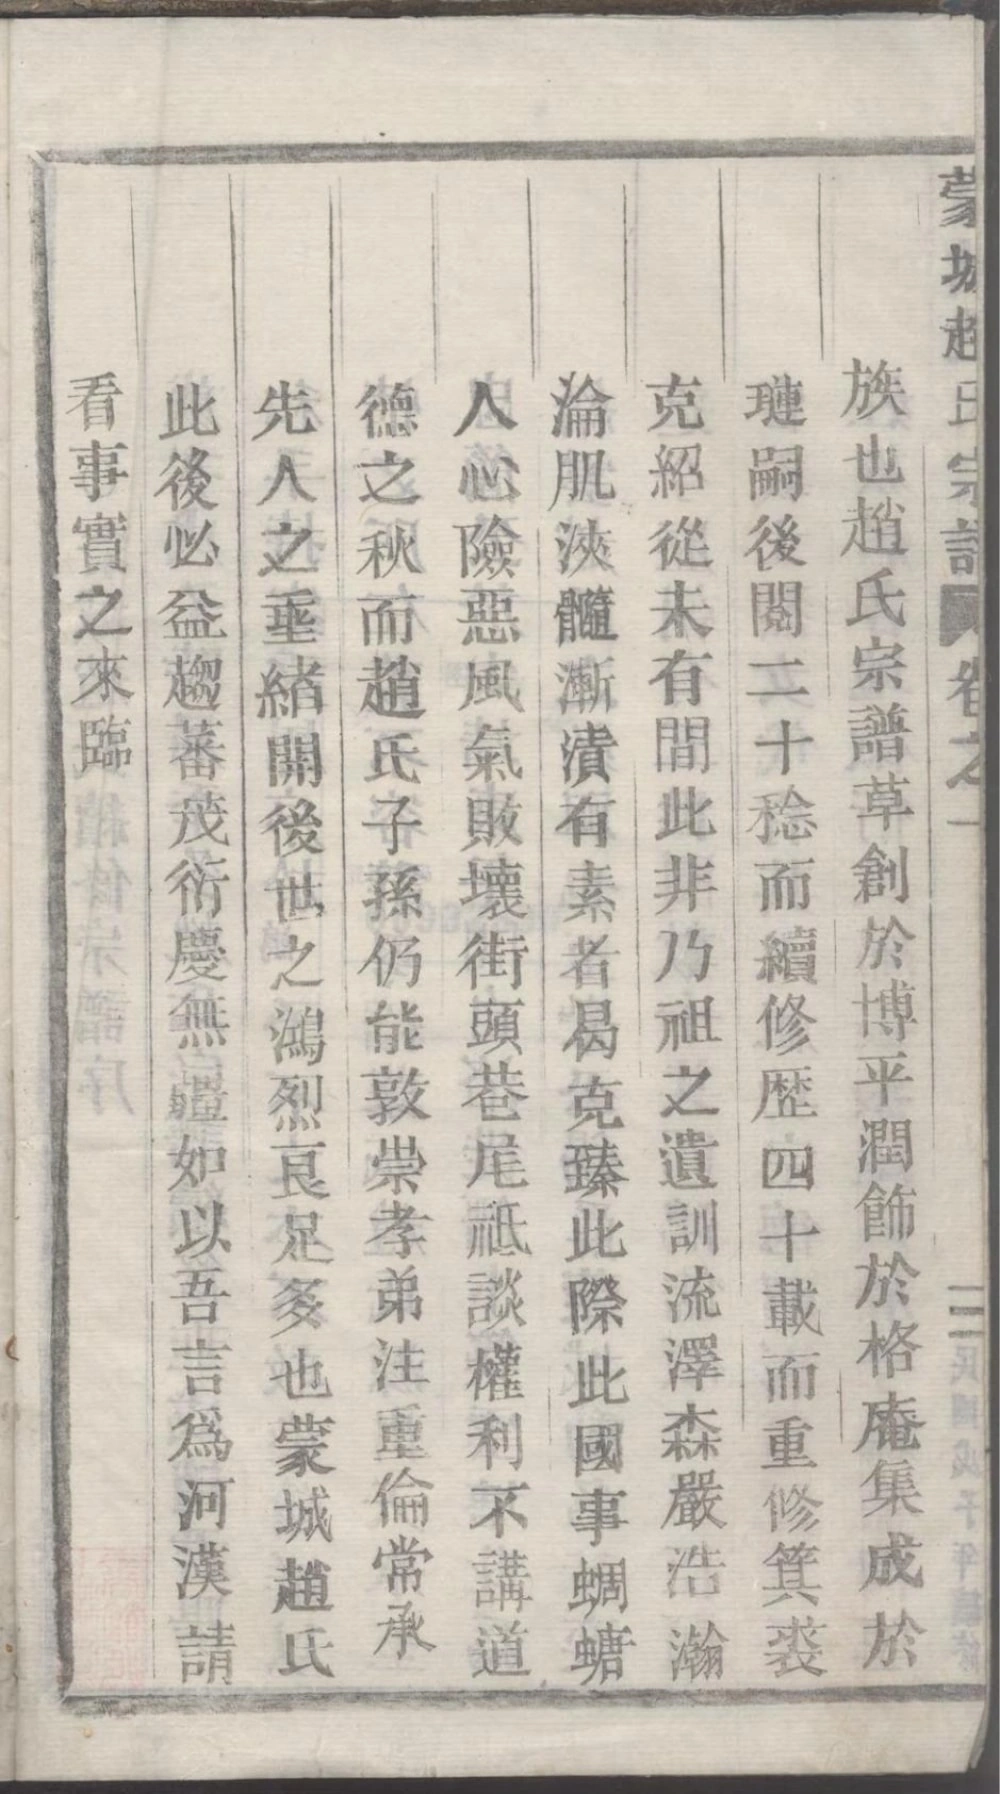 蒙城趙氏宗譜 卷之一 二 民國戊子年
族也趙氏宗譜草創於博平潤飾於格庵集成於
璉嗣後閱二十稔而續修歷四十載而重修箕裘
克紹從未有間此非乃祖之遺訓流澤森嚴浩瀚
淪肌浹髓漸漬有素者曷克臻此際此國事蜩螗
人心險惡風氣敗壞街頭巷尾祗談權利不講道
德之秋而趙氏子孫仍能敦崇孝弟注重倫常承
先人之垂緒開後世之鴻烈良足多也蒙城趙氏
此後必益趨蕃茂衍慶無疆如以吾言爲河漢請
看事實之來臨